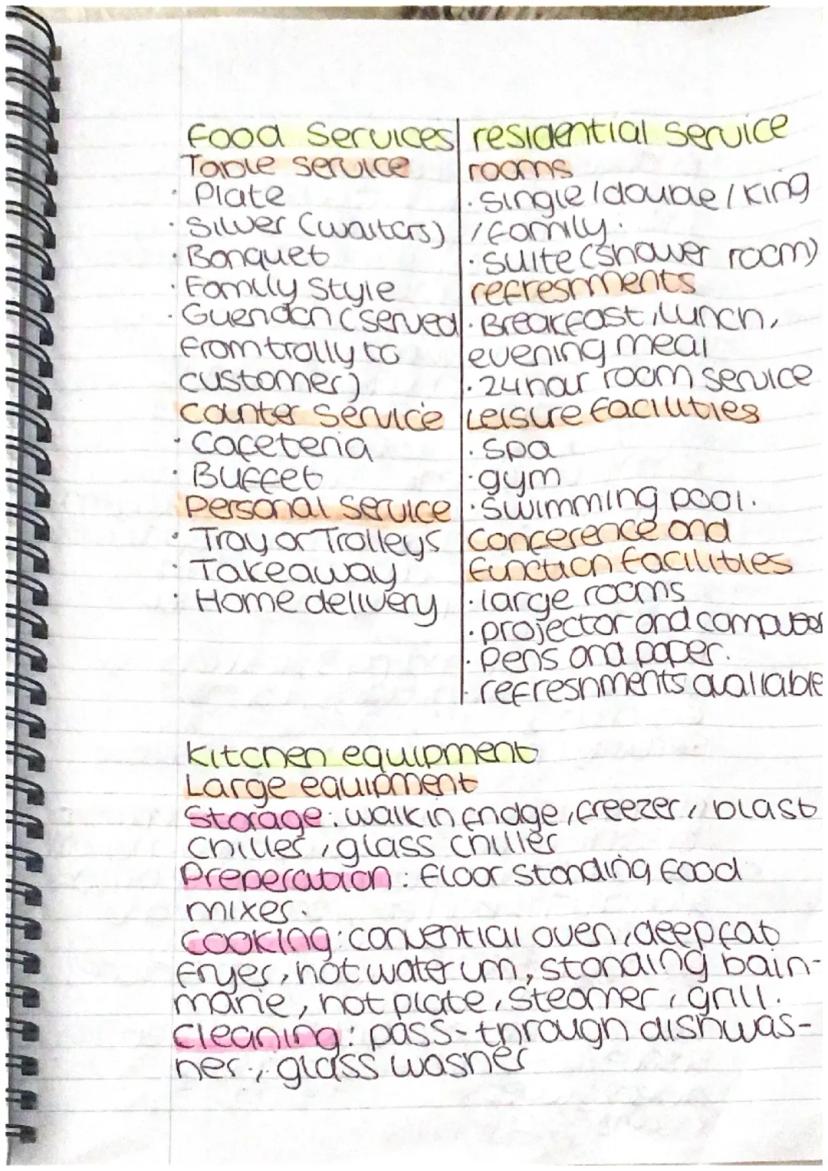 Food Services
Table service
· Plate
· Silver (waiters)
· Banquet
· Family Style
· Gueridon (served
from trolly to
customer)
Counter Service
· Cafeteria
· Buffet
Personal Service
· Tray or Trolleys
· Takeaway
· Home delivery
residential service
rooms
· single / double / King
/ family.
· suite (shower room)
refreshments
· Breakfast, lunch,
evening meal
· 24 hour room service
Leisure facilities
· spa
· gym
· swimming pool.
Conference and
function facilities
· large rooms
· projector and computer
· pens and paper.
· refreshments available
Kitchen equipment
Large equipment
Storage: walk in fridge, freezer, blast
chiller, glass chiller
Preperation: floor standing food
mixer.
Cooking: convential oven, deep fat
fryer, hot water urn, standing bain-
marie, hot plate, steamer, grill.
Cleaning: pass-through dishwas-
her, glass washer